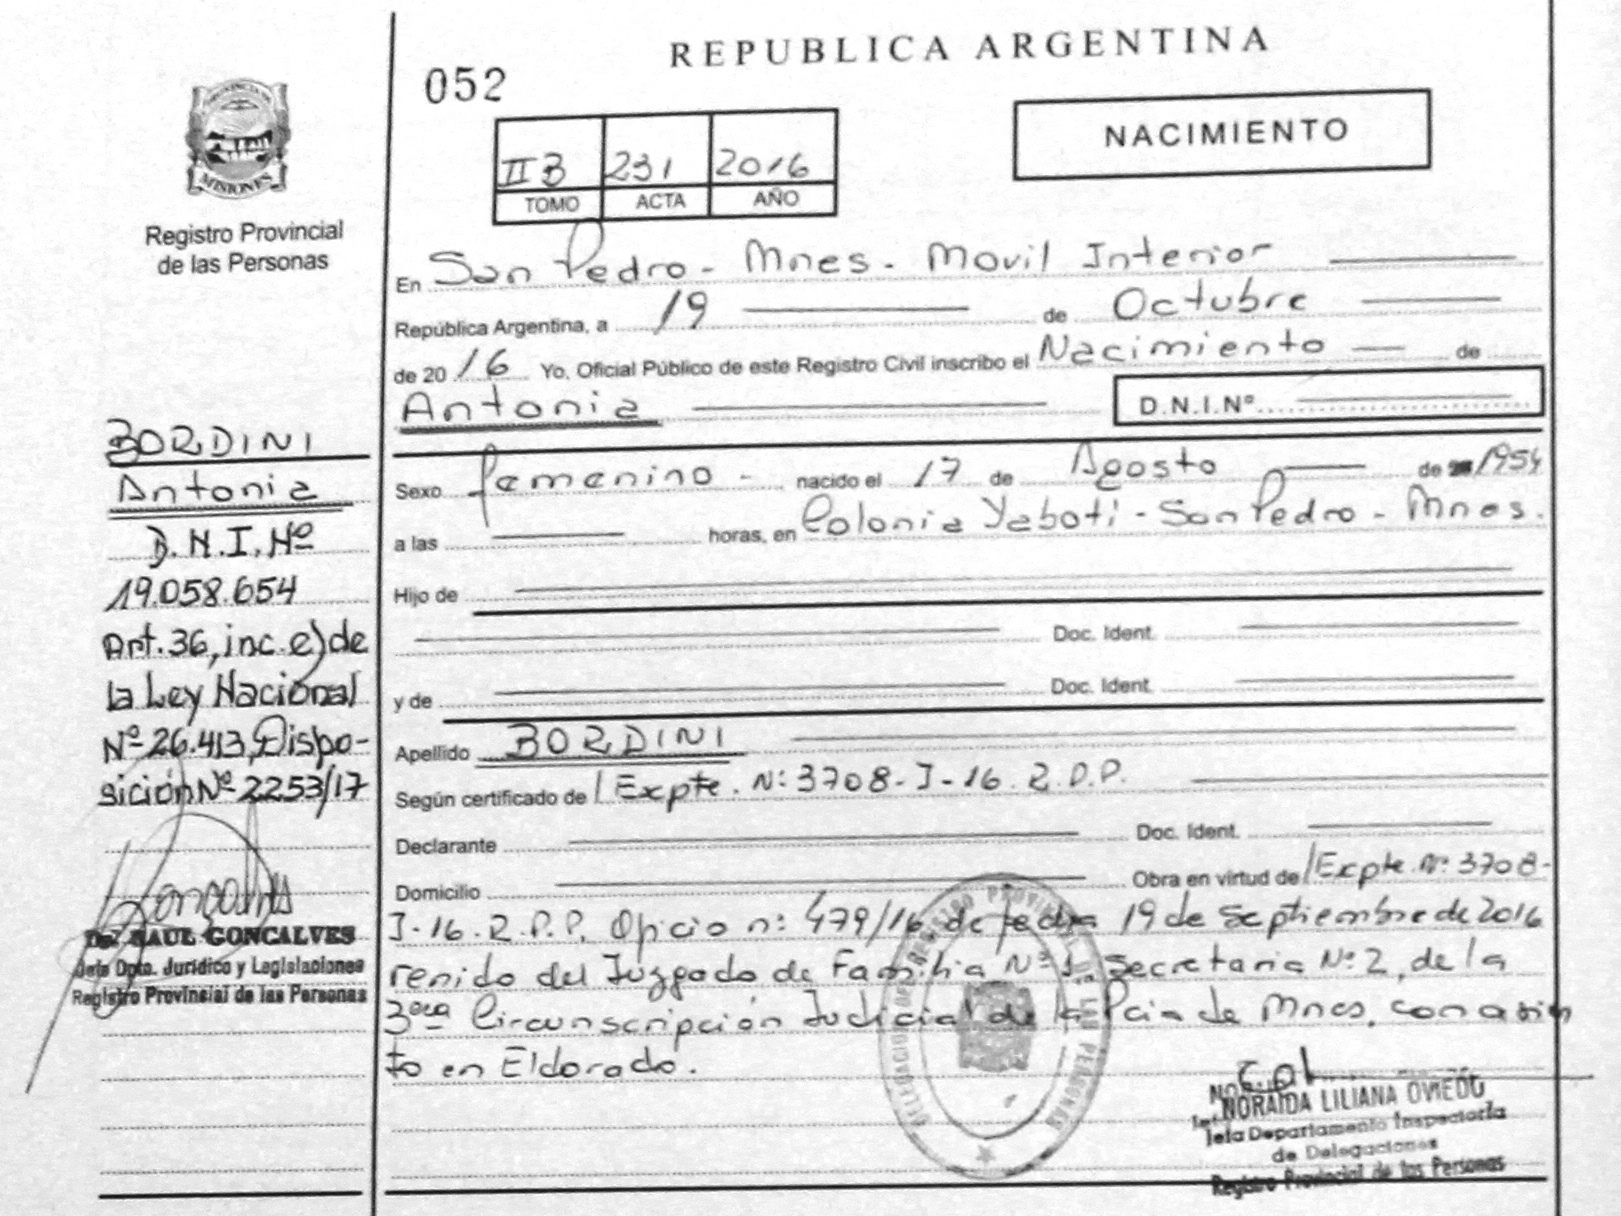 REPUBLICA ARGENTINA
052
NACIMIENTO
II B 231 2016
TOMO ACTA AÑO
MISIONES
Registro Provincial
de las Personas
En San Pedro - Mnes. Movil Interior
República Argentina, a 19 de Octubre
de 20 16 Yo, Oficial Público de este Registro Civil inscribo el Nacimiento de
Antonia D.N.I.Nº
BORDINI
Antonia
D.N.I. Nº
19.058.654
Art. 36, inc. e) de
la Ley Nacional
Nº 26.413, Dispo-
sición Nº 2253/17
Dr. RAUL GONCALVES
Jefe Dpto. Jurídico y Legislaciones
Registro Provincial de las Personas
Sexo femenino - nacido el 17 de Agosto de 1954
a las horas, en Colonia Yaboti - San Pedro - Mnes.
Hijo de
Doc. Ident.
y de Doc. Ident.
Apellido BORDINI
Según certificado de / Expte. Nº: 3708-I-16.R.P.P.
Declarante Doc. Ident.
Domicilio Obra en virtud de / Expte. Nº: 3708-
I-16.R.P.P. Oficio n: 479/16 de fecha 19 de Septiembre de 2016
renido del Juzgado de Familia Nº 1, Secretaria Nº 2, de la
3era Circunscripción Judicial de la Pcia de Mnes, con asien
to en Eldorado.
NORAIDA LILIANA OVIEDO
Jefa Departamento Inspectoria
de Delegaciones
Registro Provincial de las Personas